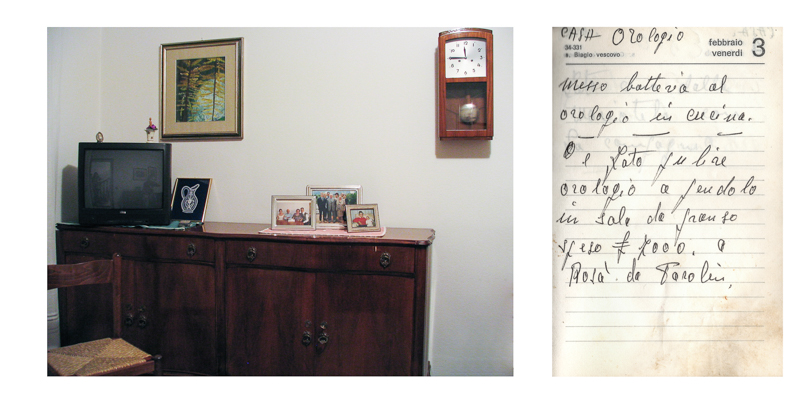 CASA Orologio
34-331
s. Biagio vescovo
febbraio
venerdi 3
messo batteria al
orologio in cucina.
O e fato pulire
orologio a pendolo
in sala da pranso
speso £ 7000. a
Rosà da Parolin,